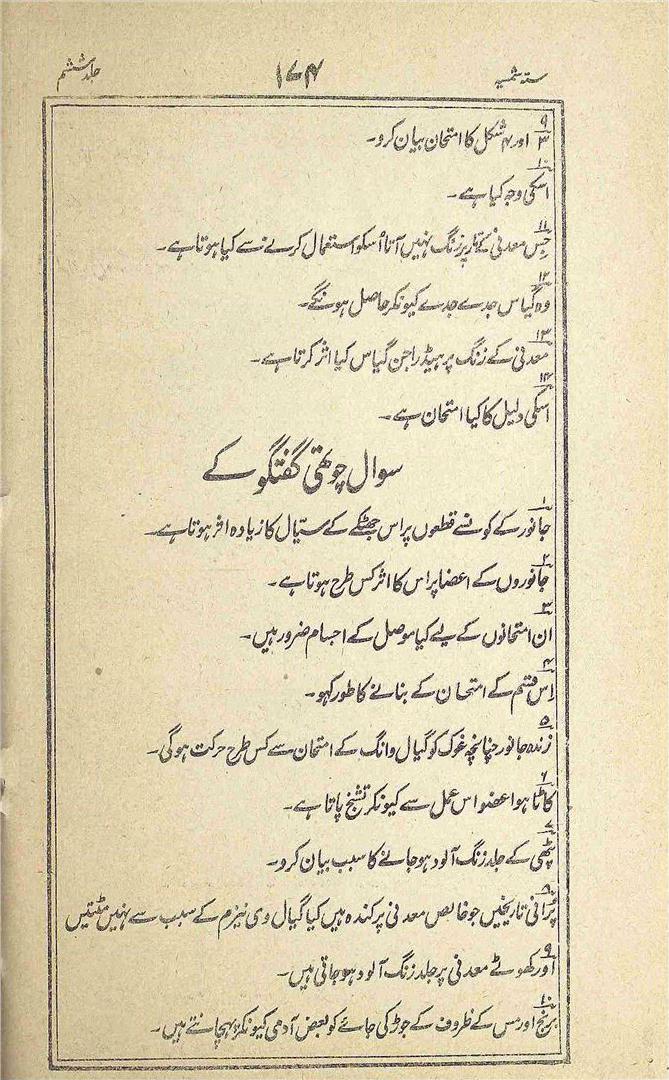 ستہ شمسیہ ۱۷۴ جلد ششم
۹
۳ اور ۴ شکل کا امتحان بیان کرو۔
۱۰
اسکی وجہ کیا ہے۔
۱۱
جس معدنی کے تار پر زنگ نہیں آتا اُسکو استعمال کرنے سے کیا ہوتا ہے۔
۱۲
وہ گیاس جدے جدے کیونکر حاصل ہونگے۔
۱۳
معدنی کے زنگ پر ہیڈراجن گیاس کیا اثر کرتا ہے۔
۱۴
اسکی دلیل کا کیا امتحان ہے۔
سوال چوتھی گفتگو کے
۱
جانور کے کونسے قطعوں پر اس جھٹکے کے سیّال کا زیادہ اثر ہوتا ہے۔
۲
جانوروں کے اعضا پر اس کا اثر کس طرح ہوتا ہے۔
۳
ان امتحانوں کے لیے کیا موصل کے اجسام ضرور ہیں۔
۴
اِس قسم کے امتحان کے بنانے کا طور کہو۔
۵
زندہ جانور چنانچہ غوک کو گیال وانک کے امتحان سے کس طرح حرکت ہوگی۔
۶
کاٹا ہوا عضو اس عمل سے کیونکر تشنج پاتا ہے۔
۷
پٹھی کے جلد زنگ آلود ہو جانے کا سبب بیان کرو۔
۸
پُرانی تاریخیں جو خالص معدنی پر کندہ ہیں کیا گیال وی نیزم کے سبب سے نہیں مٹتیں
۹
اور کھوٹے معدنی پر جلد زنگ آلود ہو جاتی ہیں۔
۱۰
برنج اور مس کے ظروف کے جوڑ کی جائے کو بعض آدمی کیونکر پہچانتے ہیں۔